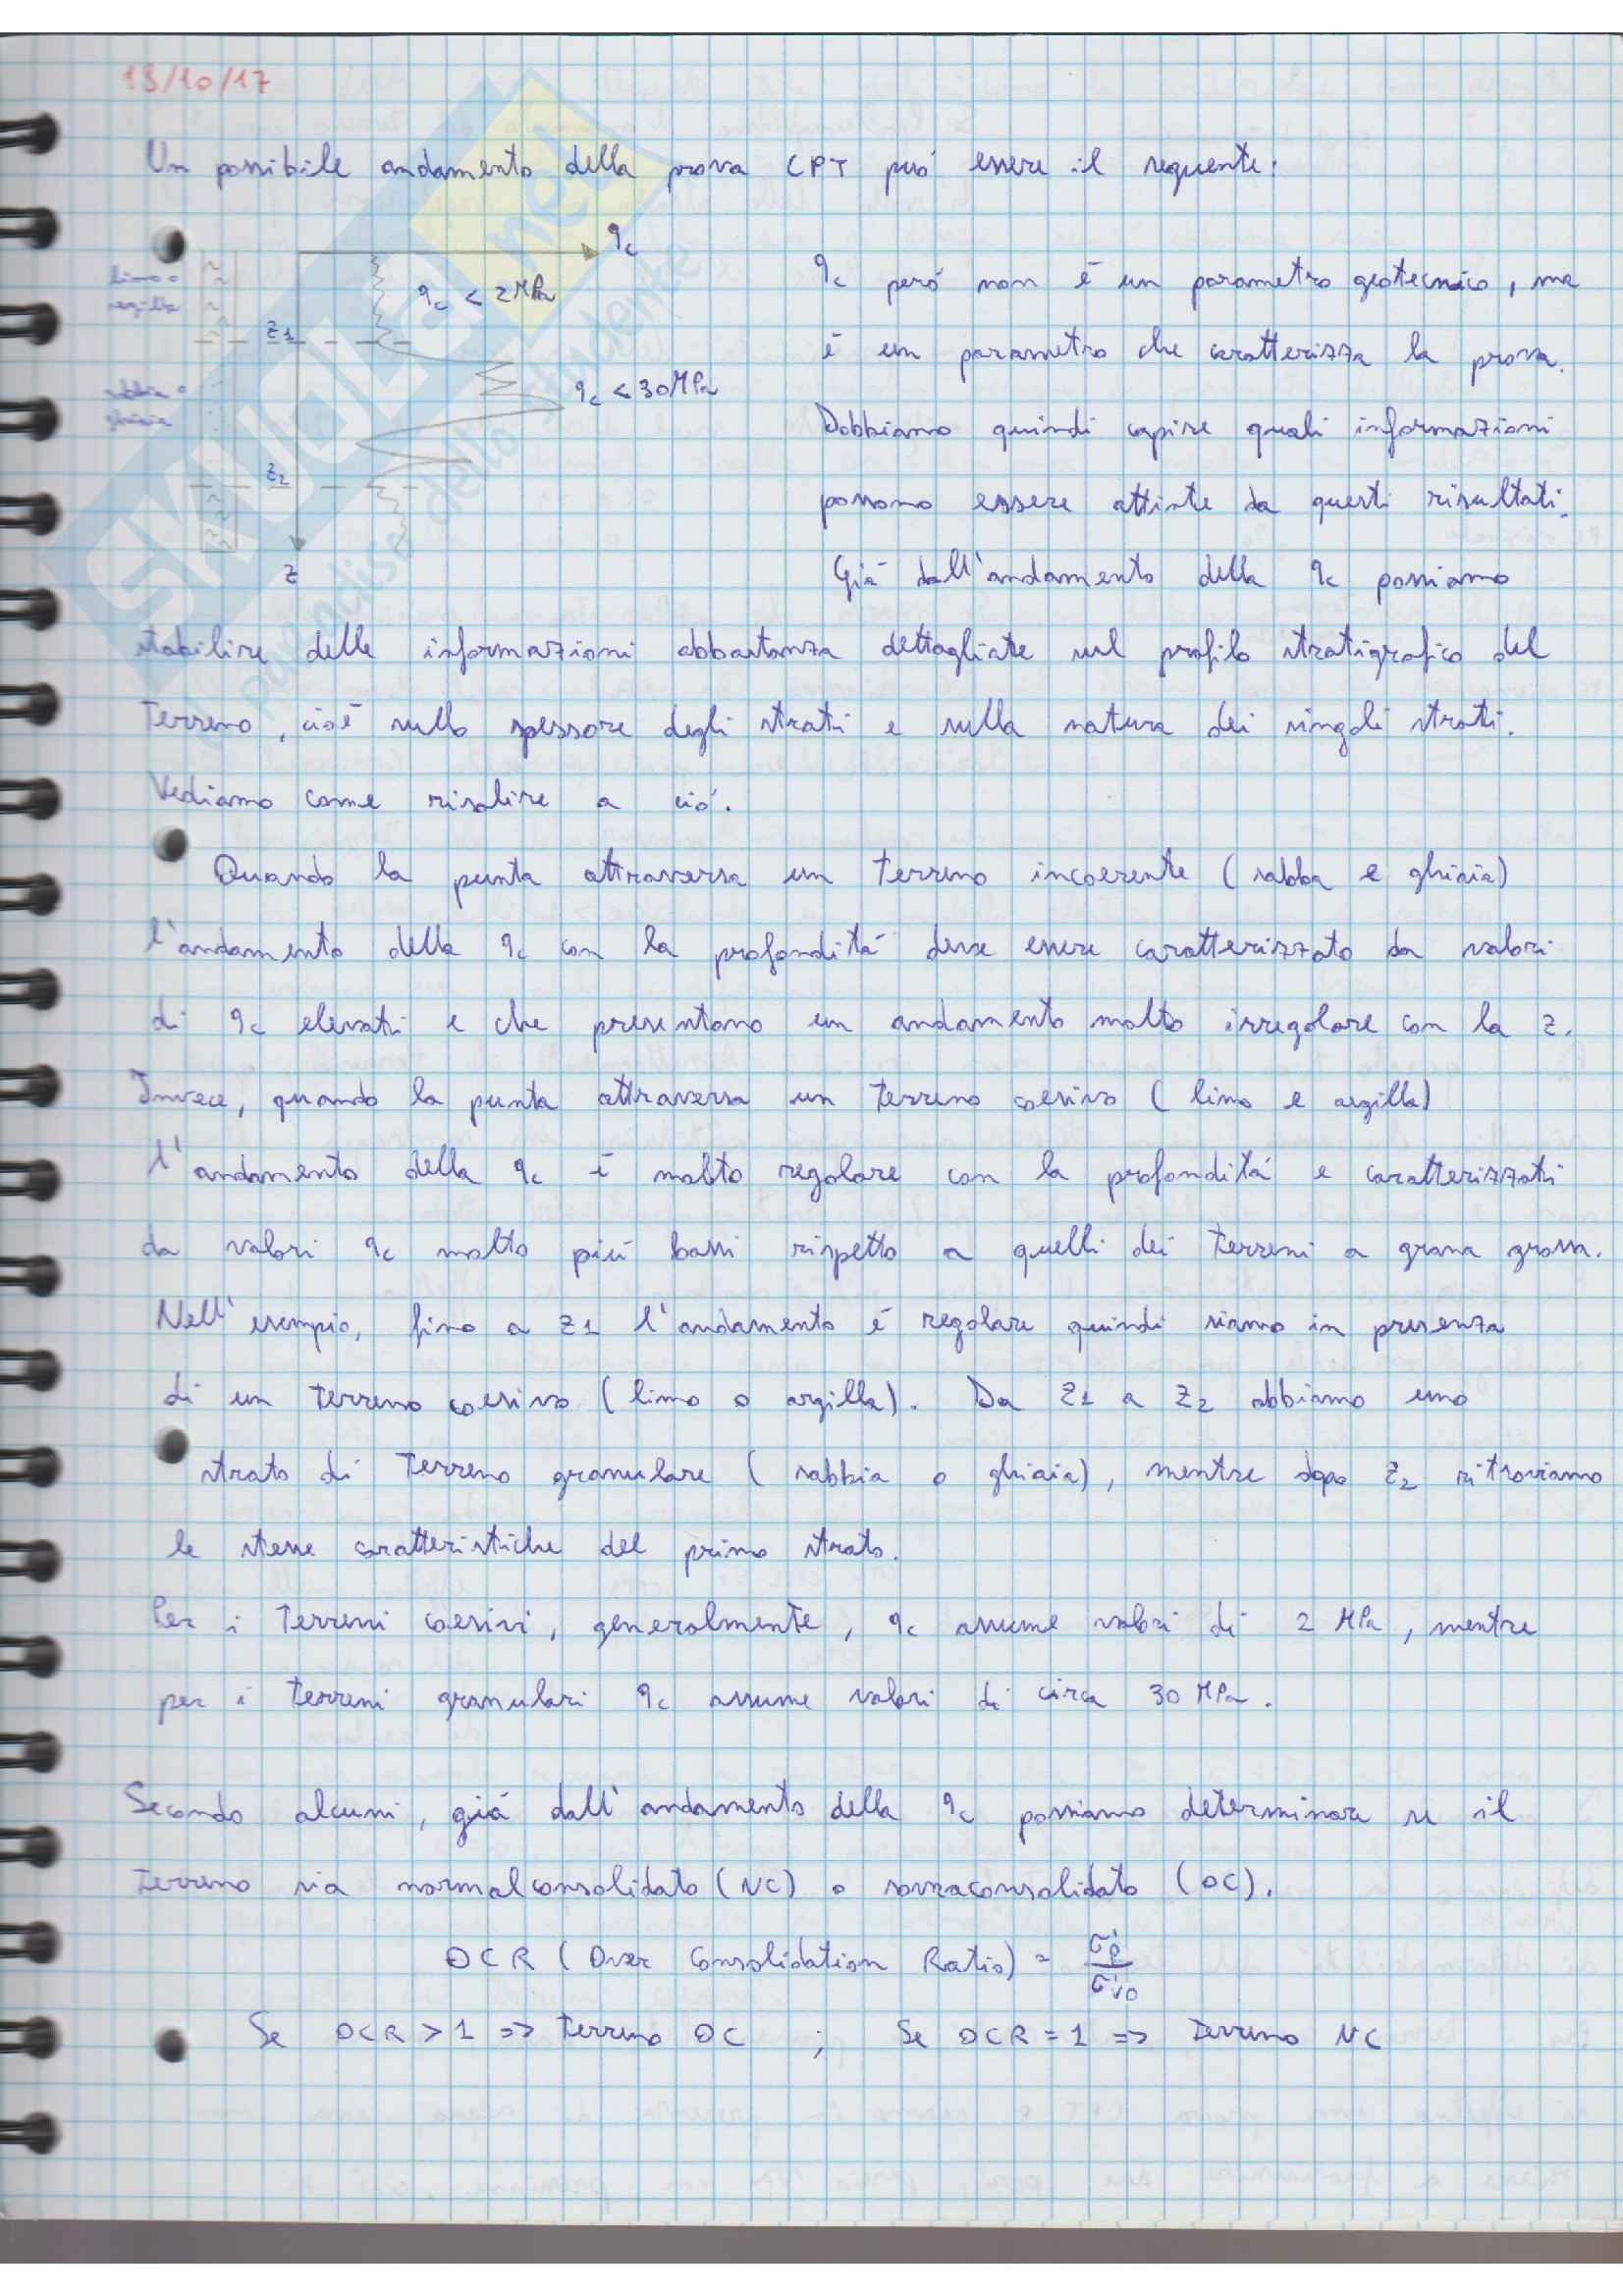 13/10/17
Un possibile andamento della prova CPT può essere il seguente:
qc
limo o
argilla
qc < 2 MPa
z1
sabbia o
ghiaia
qc < 30 MPa
z2
z
qc però non è un parametro geotecnico, ma
è un parametro che caratterizza la prova.
Dobbiamo quindi capire quali informazioni
possono essere attinte da questi risultati.
Già dall'andamento della qc possiamo
stabilire delle informazioni abbastanza dettagliate sul profilo stratigrafico del
terreno, cioè sullo spessore degli strati e sulla natura dei singoli strati.
Vediamo come risalire a ciò.
Quando la punta attraversa un terreno incoerente (sabba e ghiaia)
l'andamento della qc con la profondità deve essere caratterizzato da valori
di qc elevati e che presentano un andamento molto irregolare con la z.
Invece, quando la punta attraversa un terreno coesivo (limo e argilla)
l'andamento della qc è molto regolare con la profondità e caratterizzati
da valori qc molto più bassi rispetto a quelli dei terreni a grana grossa.
Nell'esempio, fino a z1 l'andamento è regolare quindi siamo in presenza
di un terreno coesivo (limo o argilla). Da z1 a z2 abbiamo uno
strato di terreno granulare (sabbia o ghiaia), mentre dopo z2 ritroviamo
le stesse caratteristiche del primo strato.
Per i terreni coesivi, generalmente, qc assume valori di 2 MPa, mentre
per i terreni granulari qc assume valori di circa 30 MPa.
Secondo alcuni, già dall'andamento della qc possiamo determinare se il
terreno sia normalconsolidato (NC) o sovraconsolidato (OC).
OCR (Over Consolidation Ratio) = σ'p / σ'v0
Se OCR > 1 => terreno OC ; Se OCR = 1 => terreno NC
SKUOLA.net
il paradiso dello studente